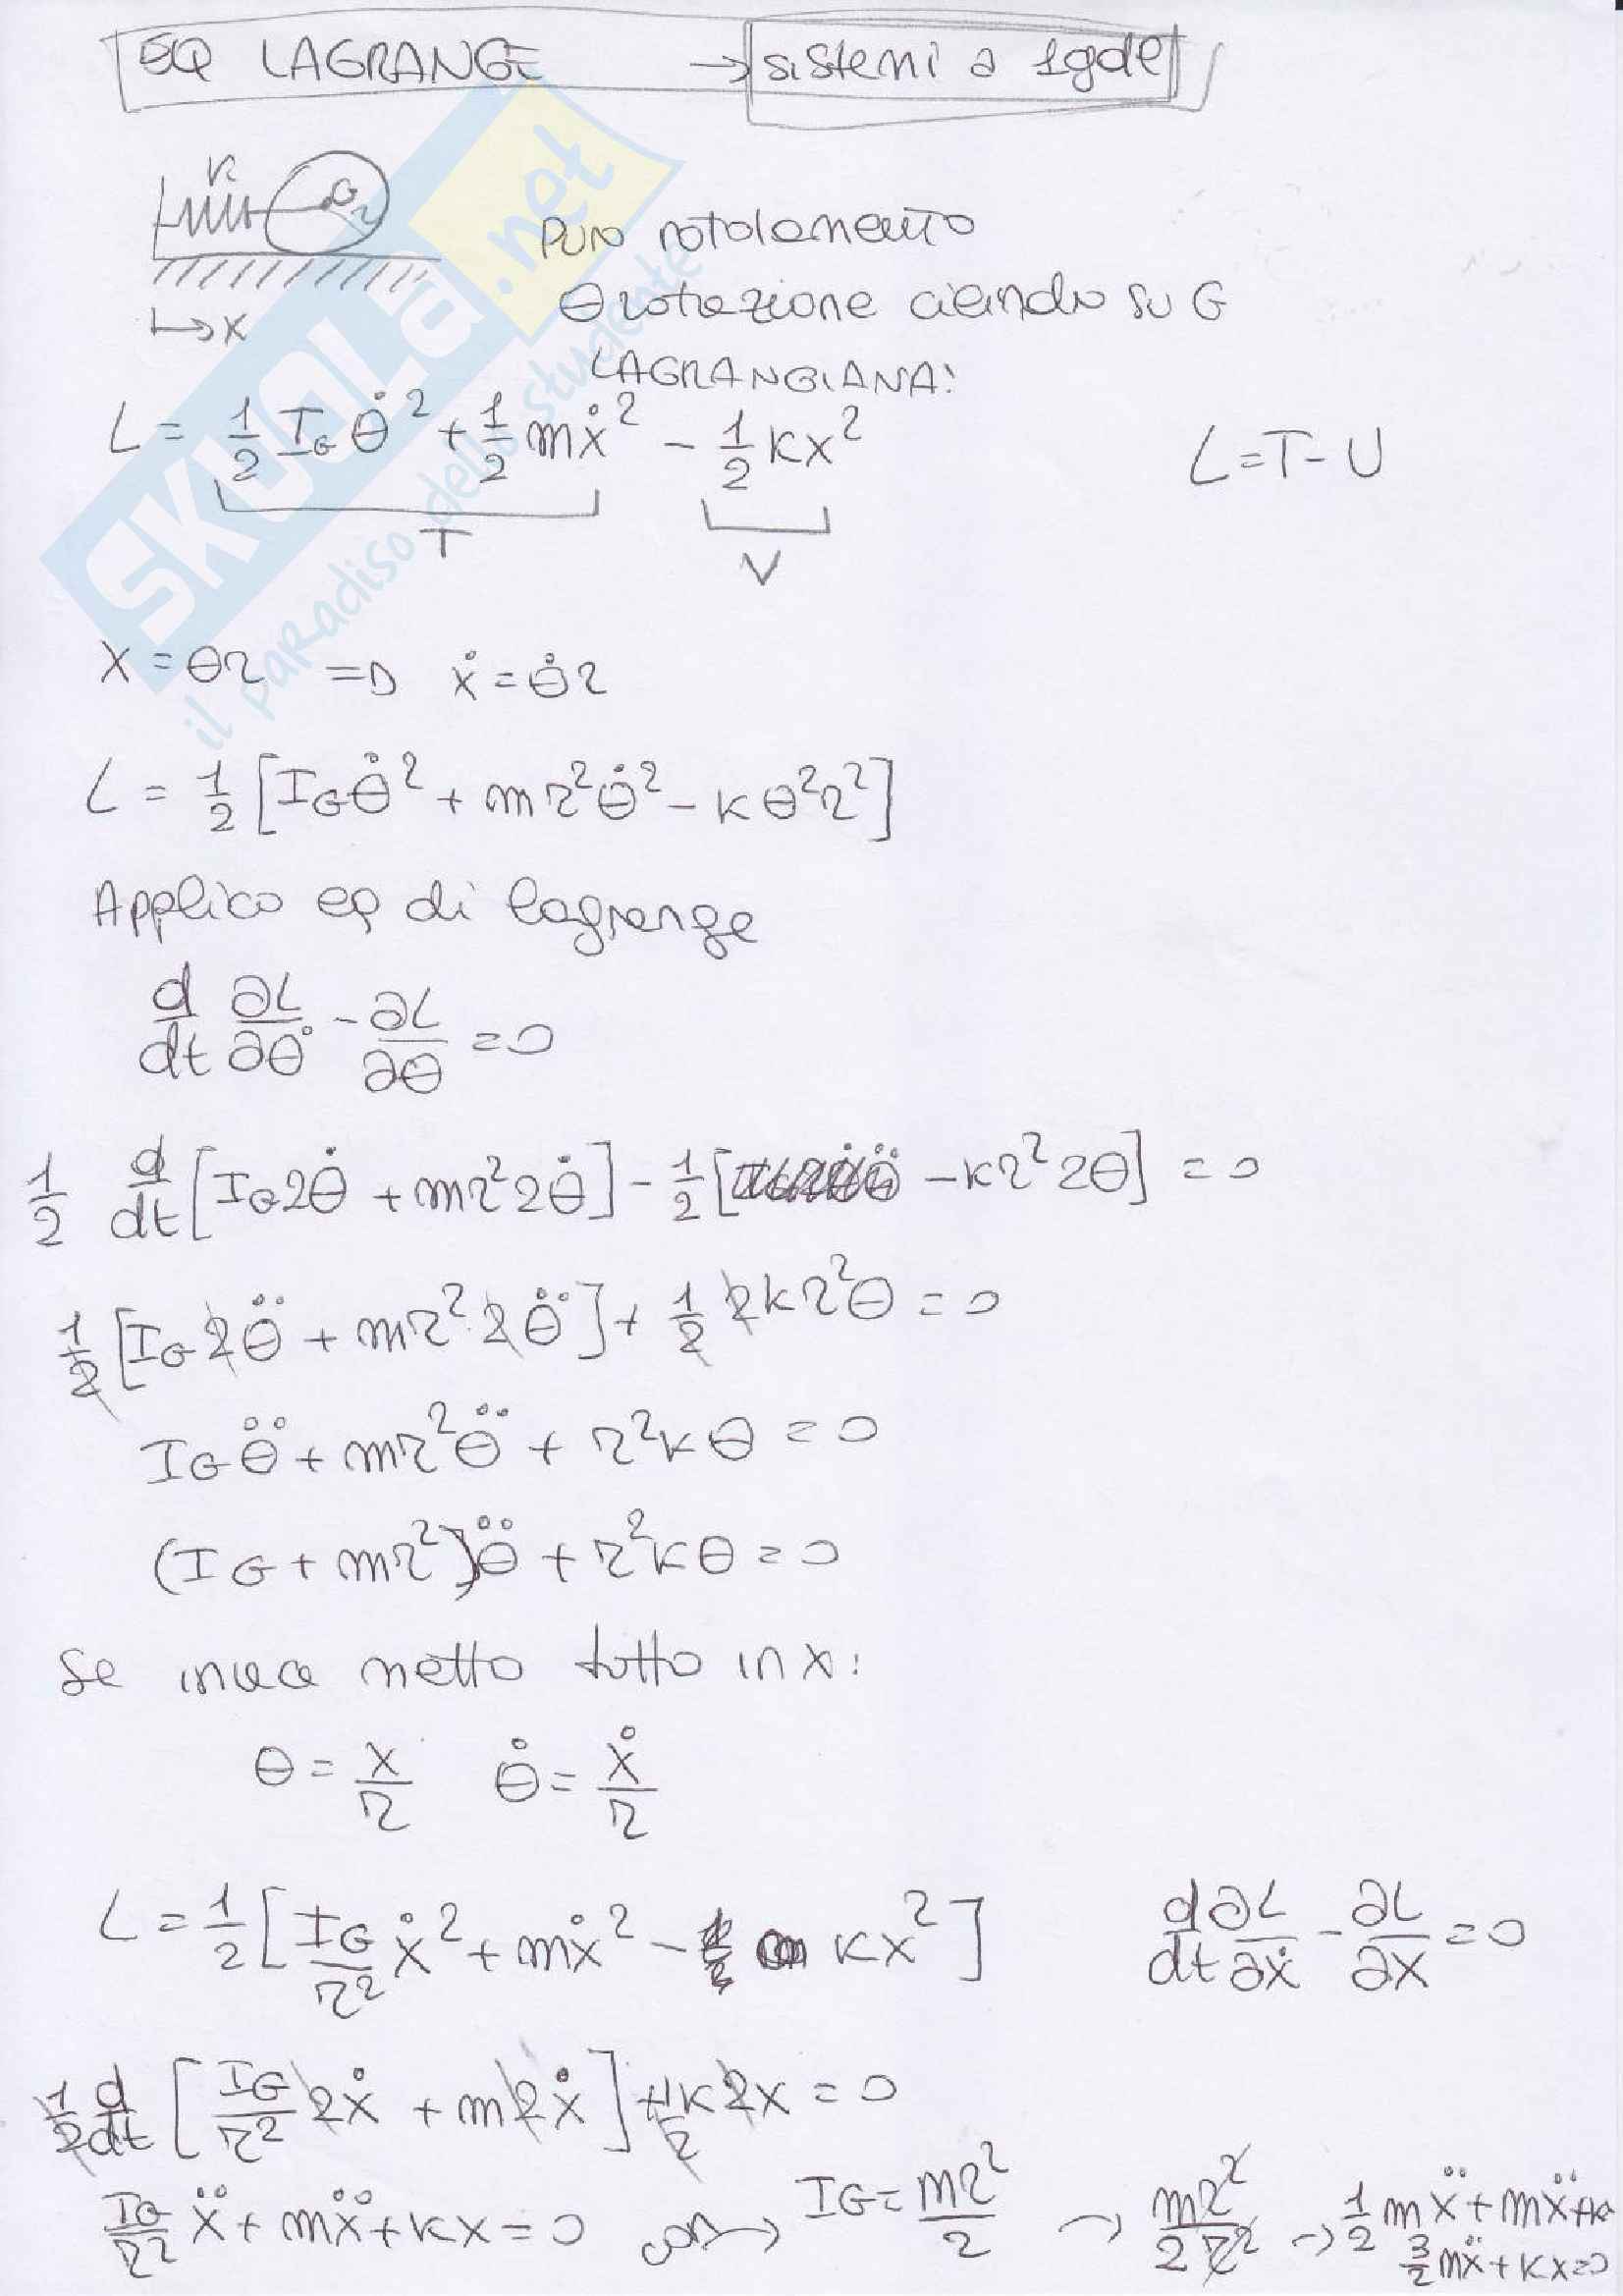 EQ LAGRANGE → sistemi a 1gdl
K
G
r
puro rotolamento
→ x
θ rotazione cilindro su G
LAGRANGIANA:
L = 1/2 I_G θ̇² + 1/2 mẋ² - 1/2 kx²
L = T - U
T
V
x = θr => ẋ = θ̇r
L = 1/2 [I_G θ̇² + mr²θ̇² - kθ²r²]
Applico eq di lagrange
d/dt ∂L/∂θ̇ - ∂L/∂θ = 0
1/2 d/dt [I_G 2θ̇ + mr² 2θ̇] - 1/2 [ - kr² 2θ] = 0
1/2 [I_G 2θ̈ + mr² 2θ̈] + 1/2 2kr²θ = 0
I_G θ̈ + mr²θ̈ + r²kθ = 0
(I_G + mr²)θ̈ + r²kθ = 0
Se invece metto tutto in x:
θ = x/r θ̇ = ẋ/r
L = 1/2 [I_G/r² ẋ² + mẋ² - kx²]
d/dt ∂L/∂ẋ - ∂L/∂x = 0
1/2 d/dt [I_G/r² 2ẋ + m2ẋ] + 1/2 k2x = 0
I_G/r² ẍ + mẍ + kx = 0 con → I_G = mr²/2 → mr²/2r² → 1/2 mẍ + mẍ + k
3/2 mẍ + kx = 0
SKUOLA.net
il paradiso dello studente